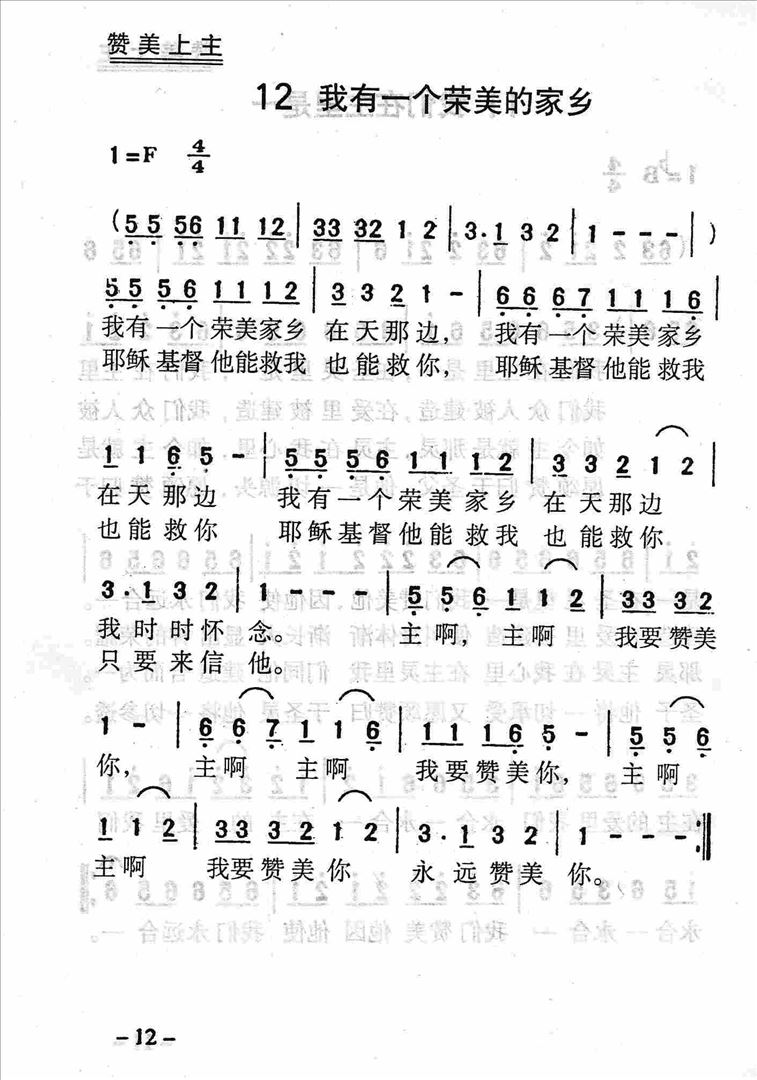 赞美上主
12 我有一个荣美的家乡
1=F 4/4
(55 56 11 12 | 33 32 1 2 | 3·1 3 2 | 1 - - - | )
5 5 5 6 1 1 1 2 | 3 3 2 1 - | 6 6 6 7 1 1 1 6 |
我有一个荣美家乡 在天那边, 我有一个荣美家乡
耶稣基督他能救我 也能救你, 耶稣基督他能救我
1 1 6 5 - | 5 5 5 6 1 1 1 2 | 3 3 2 1 2 |
在天那边 我有一个荣美家乡 在天那边
也能救你 耶稣基督他能救我 也能救你
3·1 3 2 | 1 - - - | 5 5 6 1 1 2 | 33 32
我时时怀念。 主啊, 主啊 我要赞美
只要来信他。
1 - | 6 6 7 1 1 6 | 11 16 5 - | 5 5 6
你, 主啊 主啊 我要赞美你, 主啊
1 1 2 | 33 32 1 2 | 3·1 3 2 | 1 - - - :||
主啊 我要赞美你 永远赞美 你。
-12-